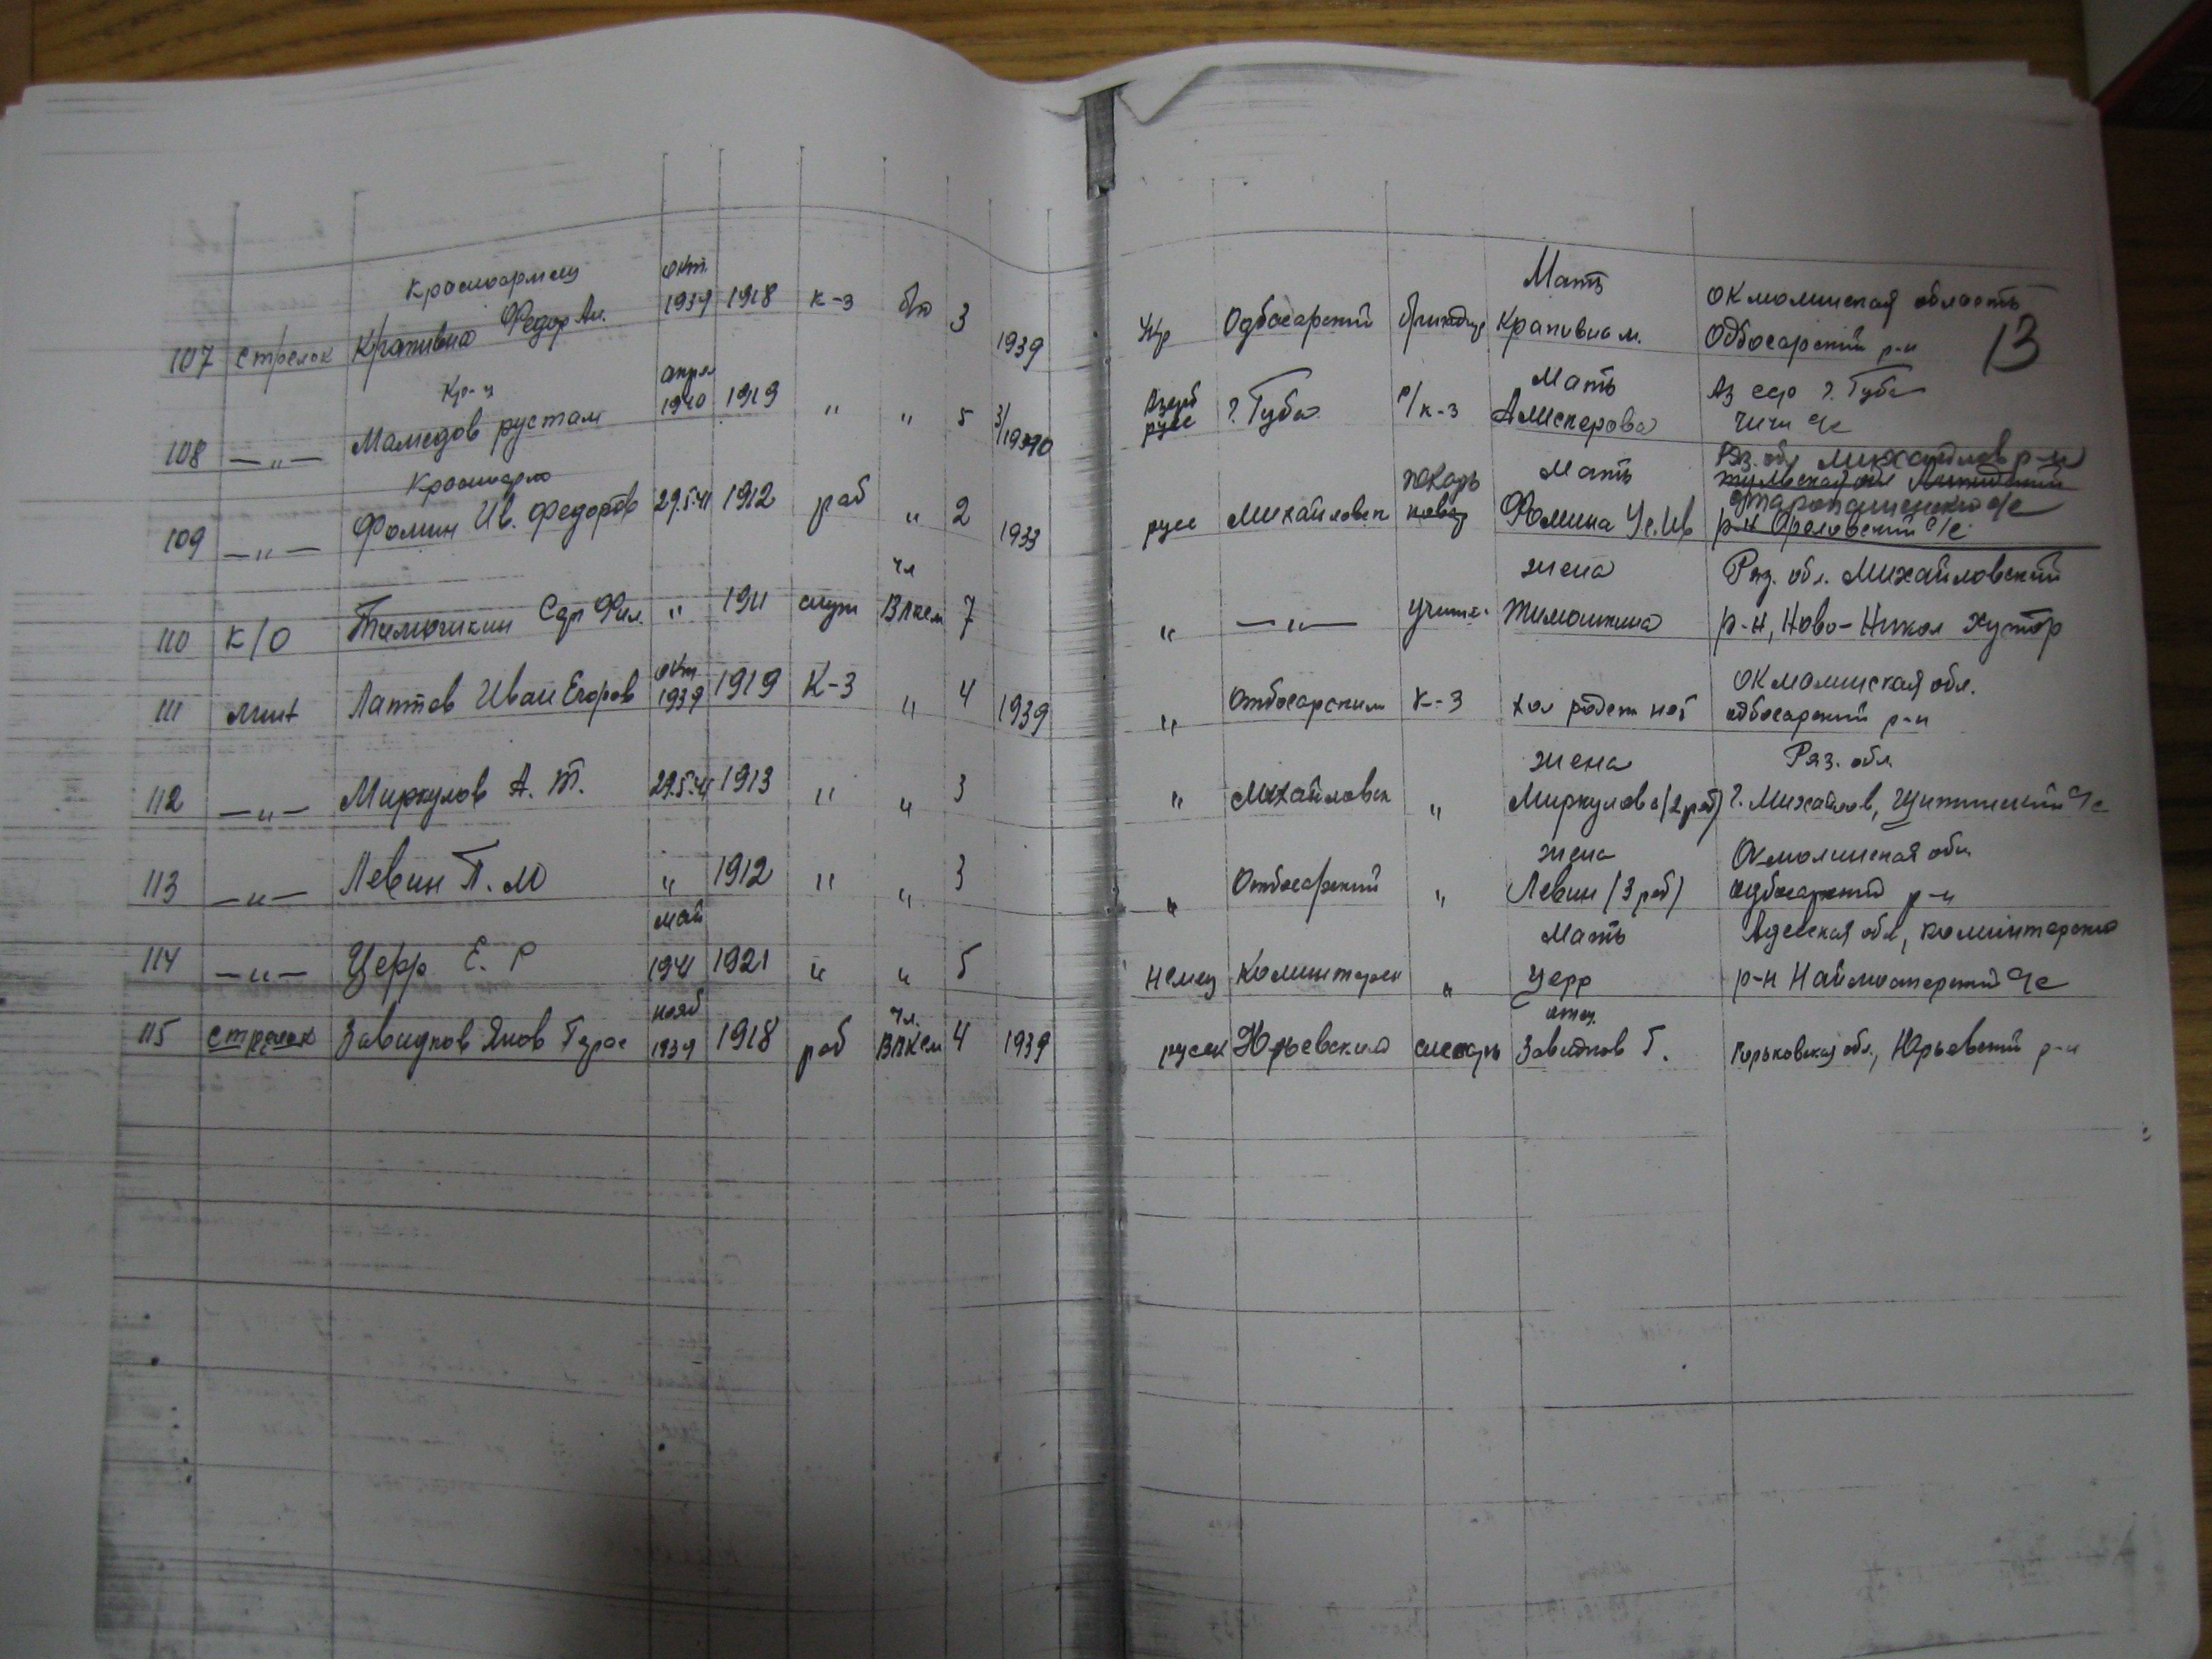 Красноармеец окт. Мать Окмолинская область
107 стрелок Крапивка Федор Ан. 1939 1918 к-з б/п 3 1939 Укр Одбасарский Крапивка м. Одбосарский р-н 13
Кр-ц апрл Азерб Мать Аз сср г. Губа
108 —"— Мамедов рустам 1940 1919 " " 5 русс г. Губа с/к-з Алискерова Чичи с/с
Красноарм пекарь Мать Ряз. обл Михайлов р-н
109 —"— Фомин Ив. Федоров 29.5.41 1912 раб " 2 1933 русс Михайловск Фомина Ус. Ив р-н Ореловский с/с
чл жена Ряз. обл. Михайловский
110 к/о Тимошкин Сер Фил. " 1911 служ ВЛКСМ 7 " —"— учит. Тимошкина р-н, Ново-Никол Хутор
окт Окмолинская обл.
111 Лаптев Иван Егоров 1939 1919 К-з " 4 1939 " Отбосарским к-з нет одбосарский р-н
жена Ряз. обл
112 —"— Миркулов А. Т. 29.5.41 1913 " " 3 " Михайловск " Миркулова (2 реб) г. Михайлов, с/с
жена Окмолинская обл.
113 —"— Левин П. М " 1912 " " 3 " Отбосарский " Левин (3 реб) одбосарский р-н
май Мать Адесская обл, коминтерско
114 —"— Церр Е. Р 1941 1921 " " 5 немец Коминтерн " Церр р-н с/с
нояб чл. отец
115 стрелок Завидков Яков Герас 1939 1918 раб ВЛКСМ 4 1939 русск Юрьевский слесарь Завидков Г. Горьковская обл., Юрьевский р-н